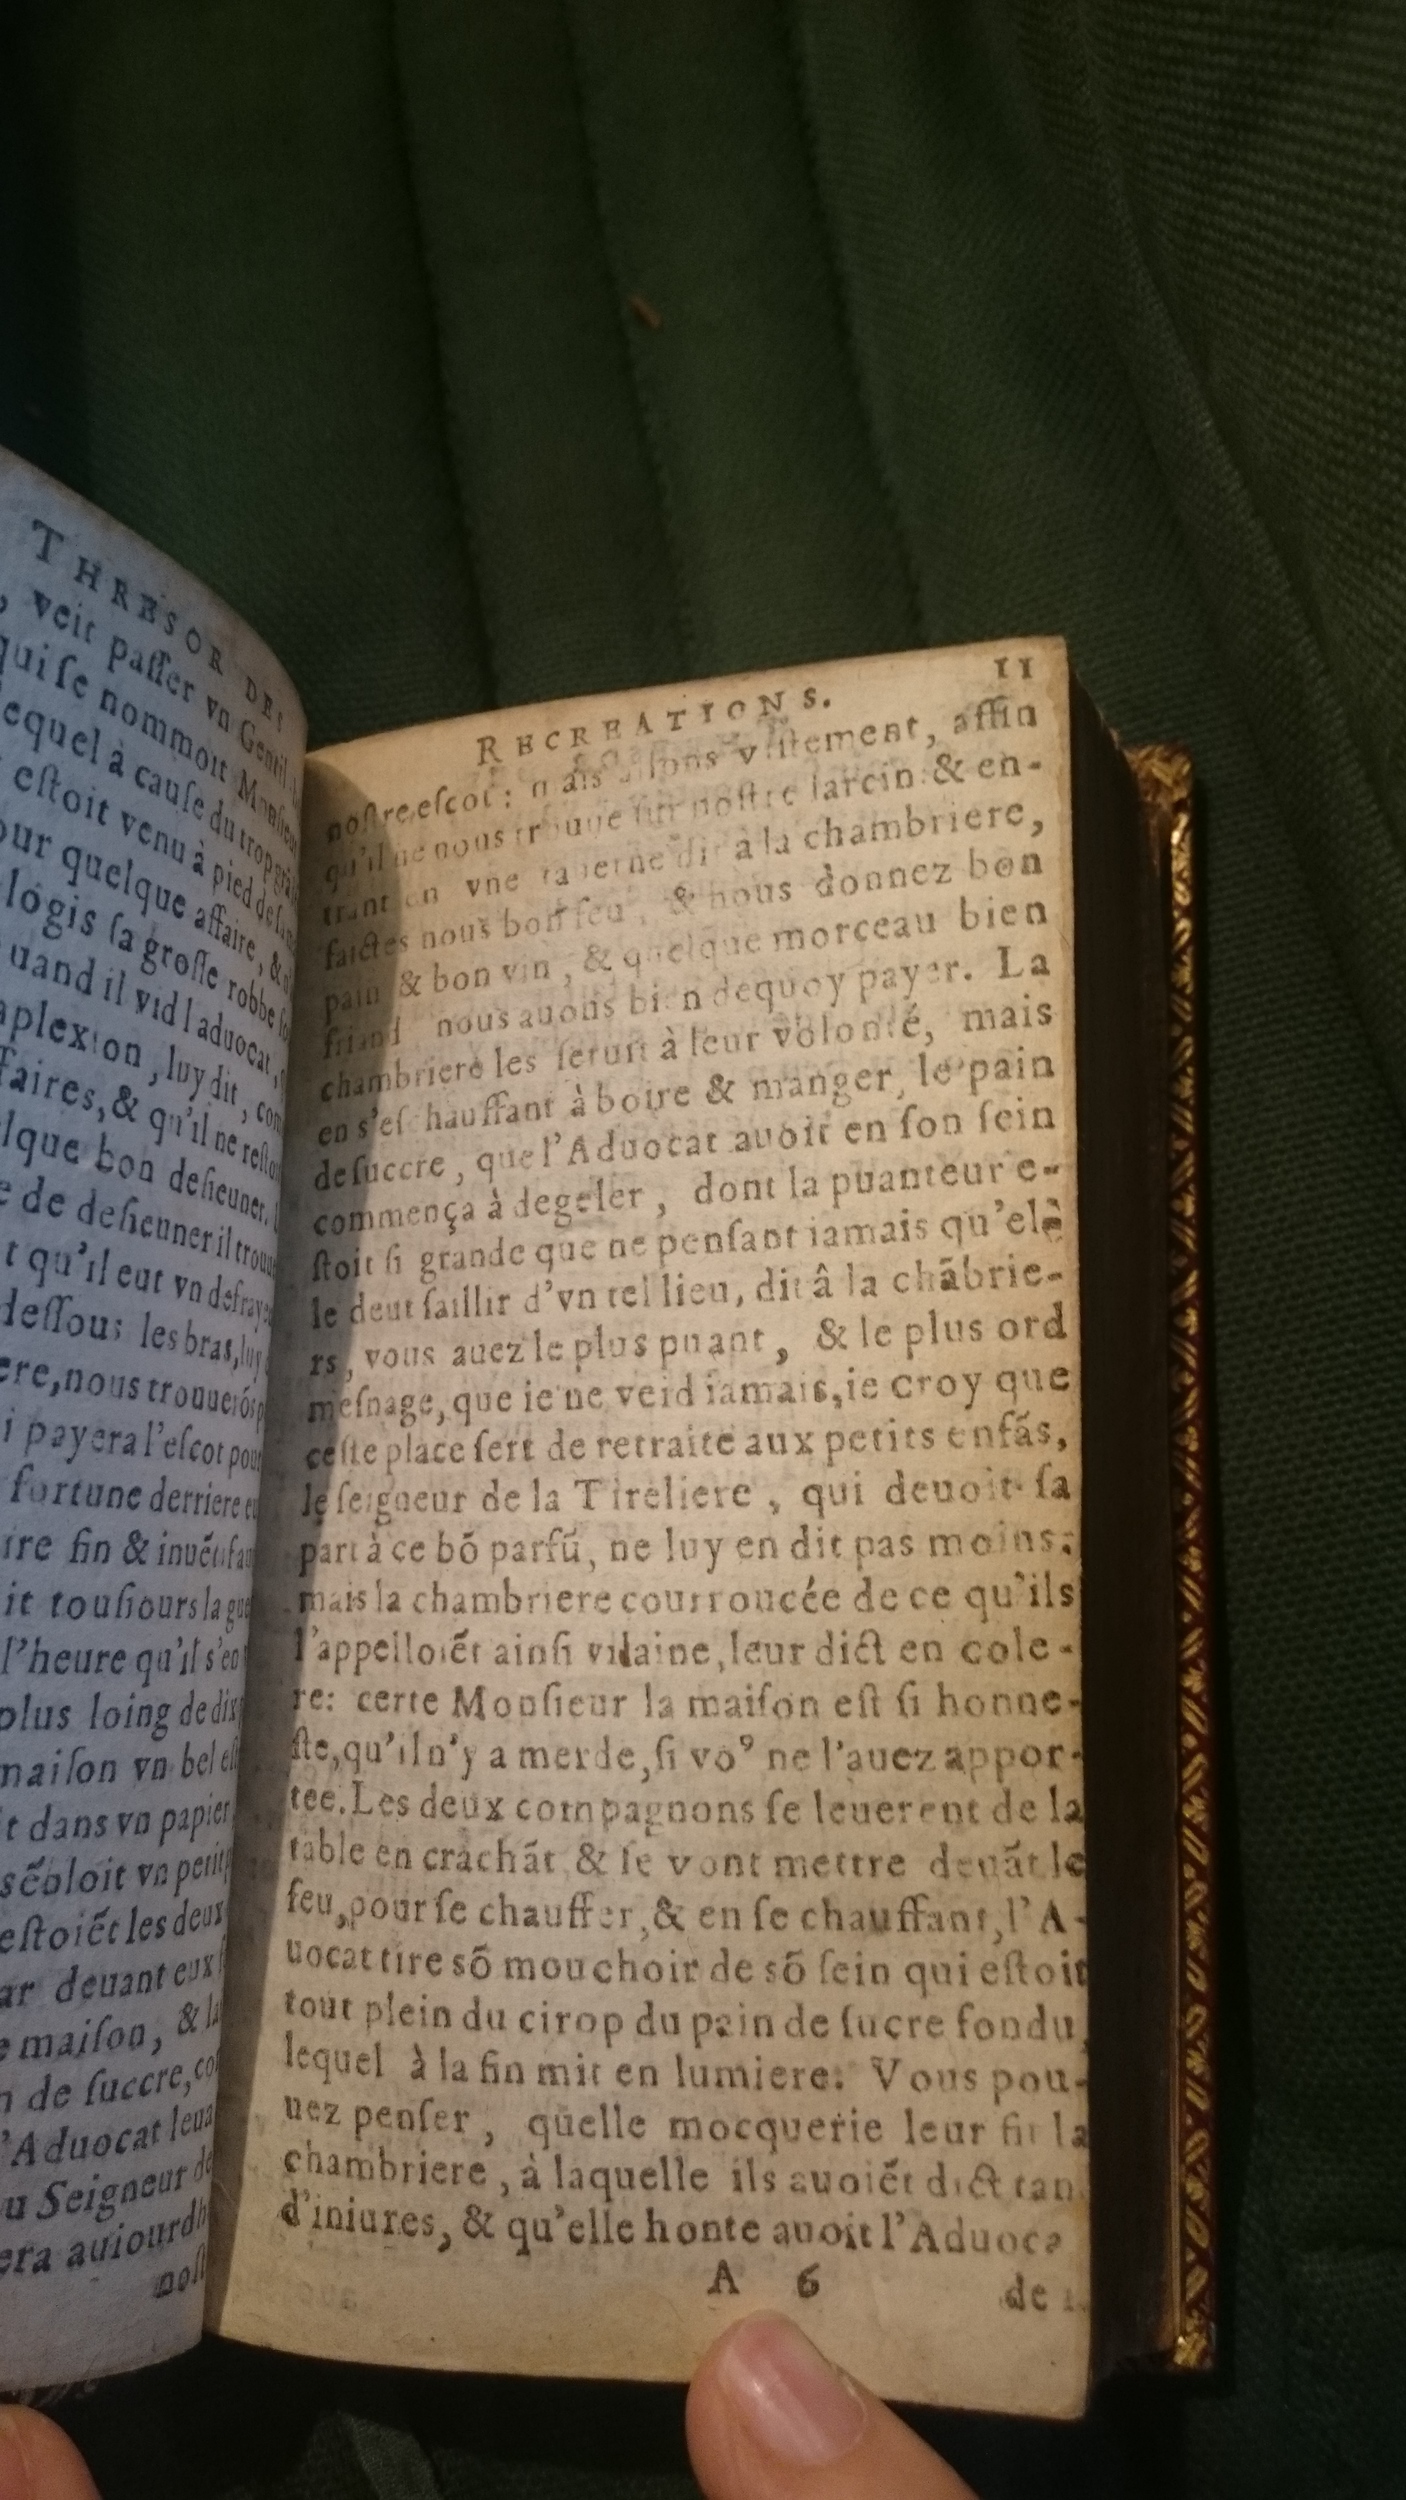 THRESOR DES
, veit passer vn Gentil
qui se nommoit Monsieur
equel à cause du trop
estoit venu à pied de
our quelque affaire, &
logis sa grosse robbe
uand il vid l aduocat,
plexion, luy dit, com
faires, & qu'il ne restoi
lque bon desieuner.
e de desieuner il trouu
t qu'il eut vn defraye
dessous les bras, luy
ere, nous trouuerõs
i payera l'escot pour
fortune derriere eu
tre fin & inuẽ
it tousiours la gue
l'heure qu'il s'en
plus loing de dix
maison vn bel est
t dans vn papier
sẽbloit vn petit
estoiẽt les deux
ar deuant eux
e maison, & la
n de succre, co
'Aduocat leua
u Seigneur de
era auiourdh
nost
RECREATIONS. 11
nostre escot: mais allons vistement, affin
qu'il ne nous trouue sur nostre larcin: & en-
trant en vne tauerne dit à la chambriere,
faictes nous bon feu, & nous donnez bon
pain & bon vin, & quelque morceau bien
friand nous auons bien dequoy payer. La
chambriere les seruit à leur volonté, mais
en s'eschauffant à boire & manger, le pain
de succre, que l'Aduocat auoit en son sein
commença à degeler, dont la puanteur e-
stoit si grande que ne pensant iamais qu'elè
le deut saillir d'vn tel lieu, dit â la chãbrie-
rs, vous auez le plus puant, & le plus ord
mesnage, que ie ne veid iamais, ie croy que
ceste place sert de retraite aux petits enfãs,
le seigneur de la Tireliere, qui deuoit sa
part à ce bõ parfũ, ne luy en dit pas moins:
mais la chambriere courroucée de ce qu'ils
l'appelloiẽt ainsi vilaine, leur dict en cole-
re: certe Monsieur la maison est si honne-
ste, qu'il n'y a merde, si voꝰ ne l'auez appor-
tee. Les deux compagnons se leuerent de la
table en crachãt & se vont mettre deuãt le
feu, pour se chauffer, & en se chauffant, l'A-
uocat tire sõ mouchoir de sõ sein qui estoit
tout plein du cirop du pain de sucre fondu,
lequel à la fin mit en lumiere: Vous pou-
uez penser, quelle mocquerie leur fit la
chambriere, à laquelle ils auoiẽt dict tan
d'iniures, & qu'elle honte auoit l'Aduoca
A 6 de